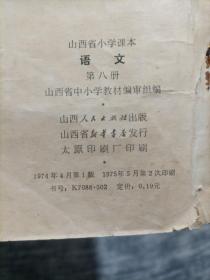 山西省小学课本
语文
第八册
山西省中小学教材编审组编
山西人民出版社出版
山西省新华书店发行
太原印刷厂印刷
1974年4月第1版 1975年5月第2次印刷
书号：K7088·502 定价：0.19元